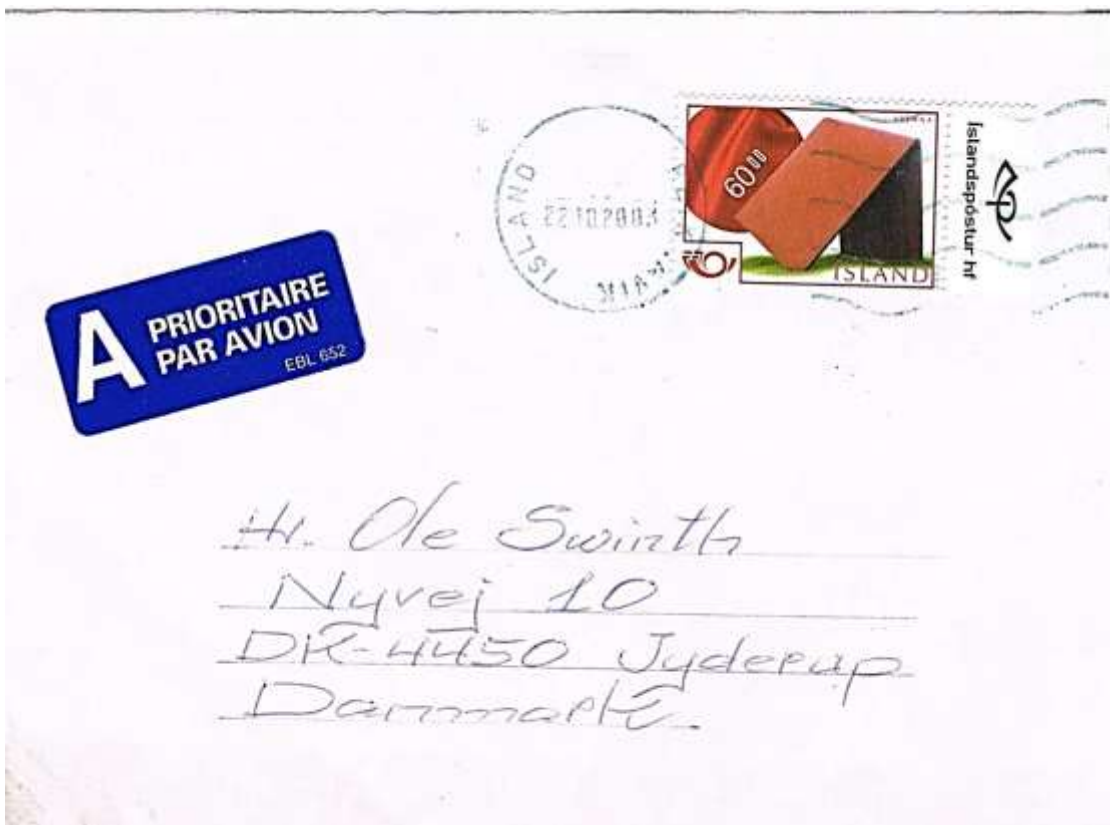 ISLAND
22.10.2003
60⁰⁰
ÍSLAND
Íslandspóstur hf
A PRIORITAIRE
PAR AVION
EBL 652
Hr. Ole Swinth
Nyvej 10
DK-4450 Jyderup
Danmark